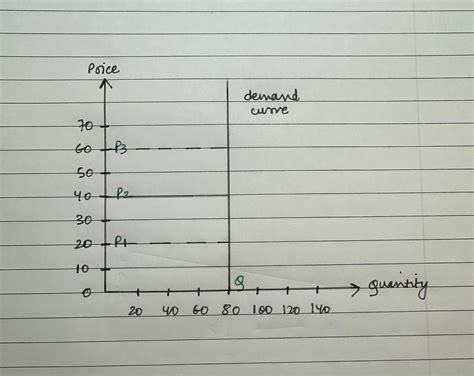 Price
demand
curve
70
60 P3
50
40 P2
30
20 P1
10
0
Q
Quantity
20 40 60 80 100 120 140